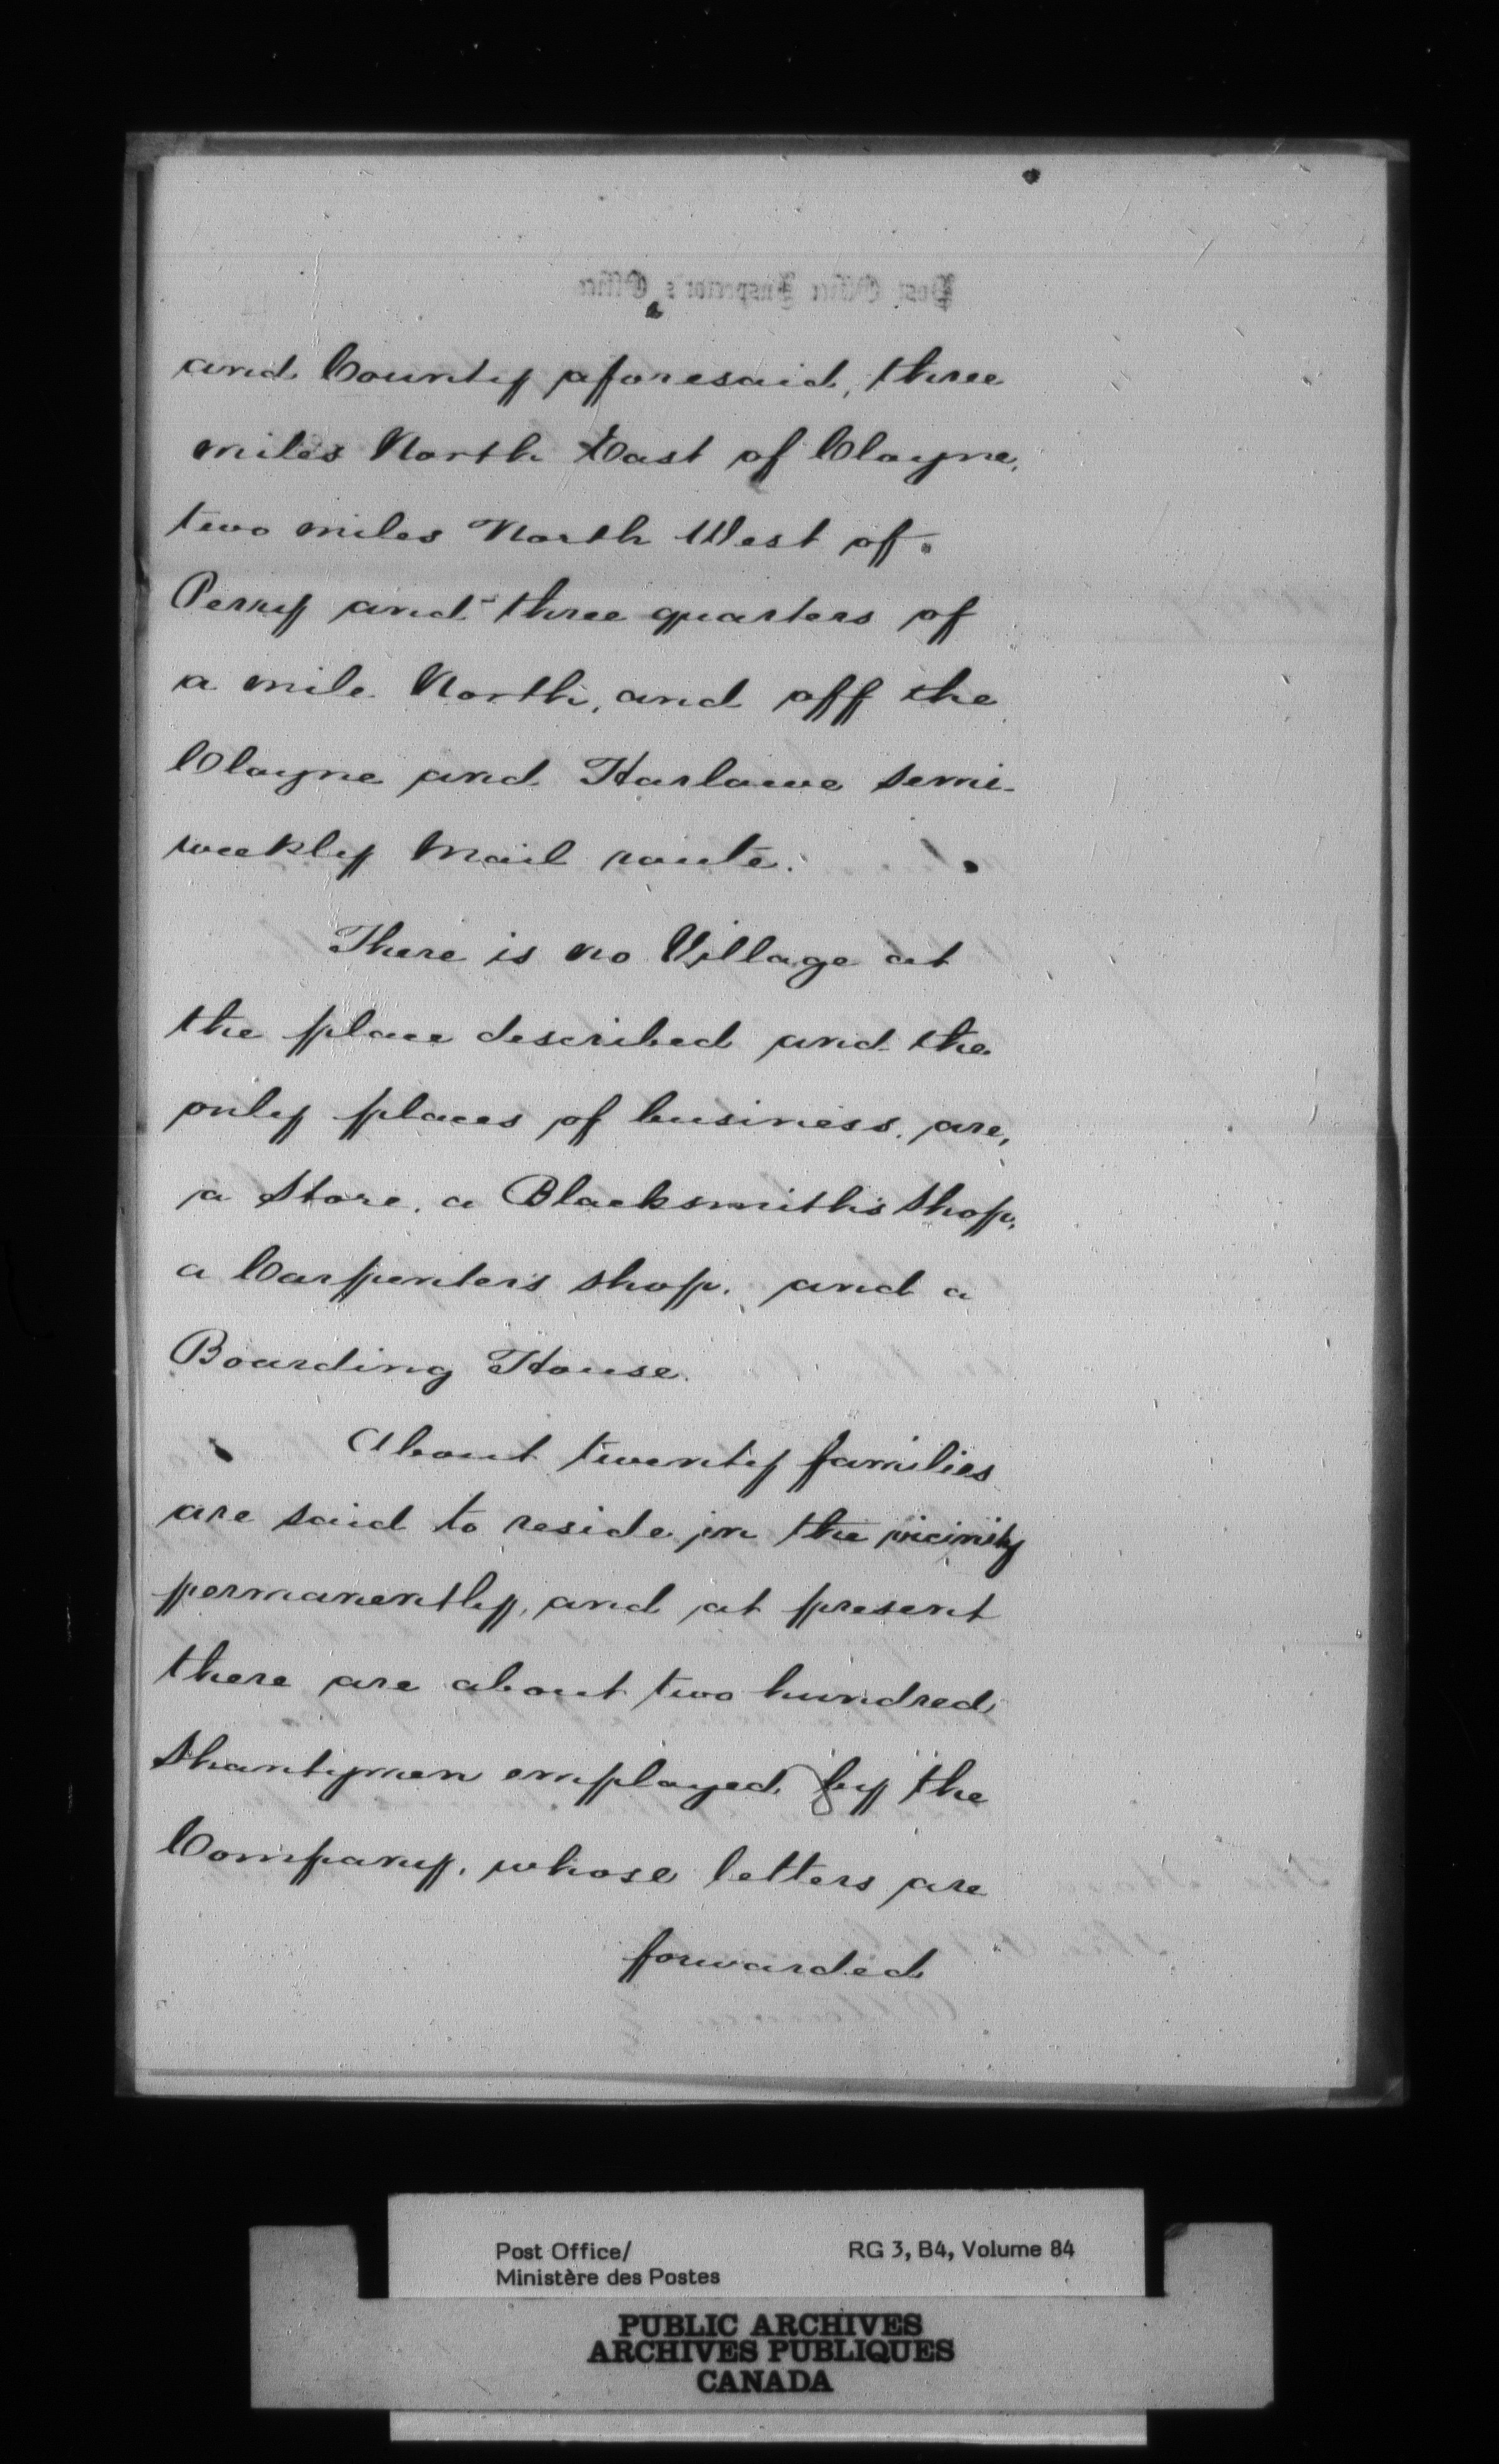 Post Office Inspector's Office
and County aforesaid, three
miles North East of Cloyne,
two miles North West of
Perry and three quarters of
a mile North, and off the
Cloyne and Harlowe semi-
weekly Mail route.
There is no Village at
the place described and the
only places of business, are,
a Store, a Blacksmith's Shop,
a Carpenter's shop, and a
Boarding House.
About twenty families
are said to reside in the vicinity
permanently, and at present
there are about two hundred
Shantymen employed by the
Company, whose letters are
forwarded
Post Office/ RG 3, B4, Volume 84
Ministère des Postes
PUBLIC ARCHIVES
ARCHIVES PUBLIQUES
CANADA